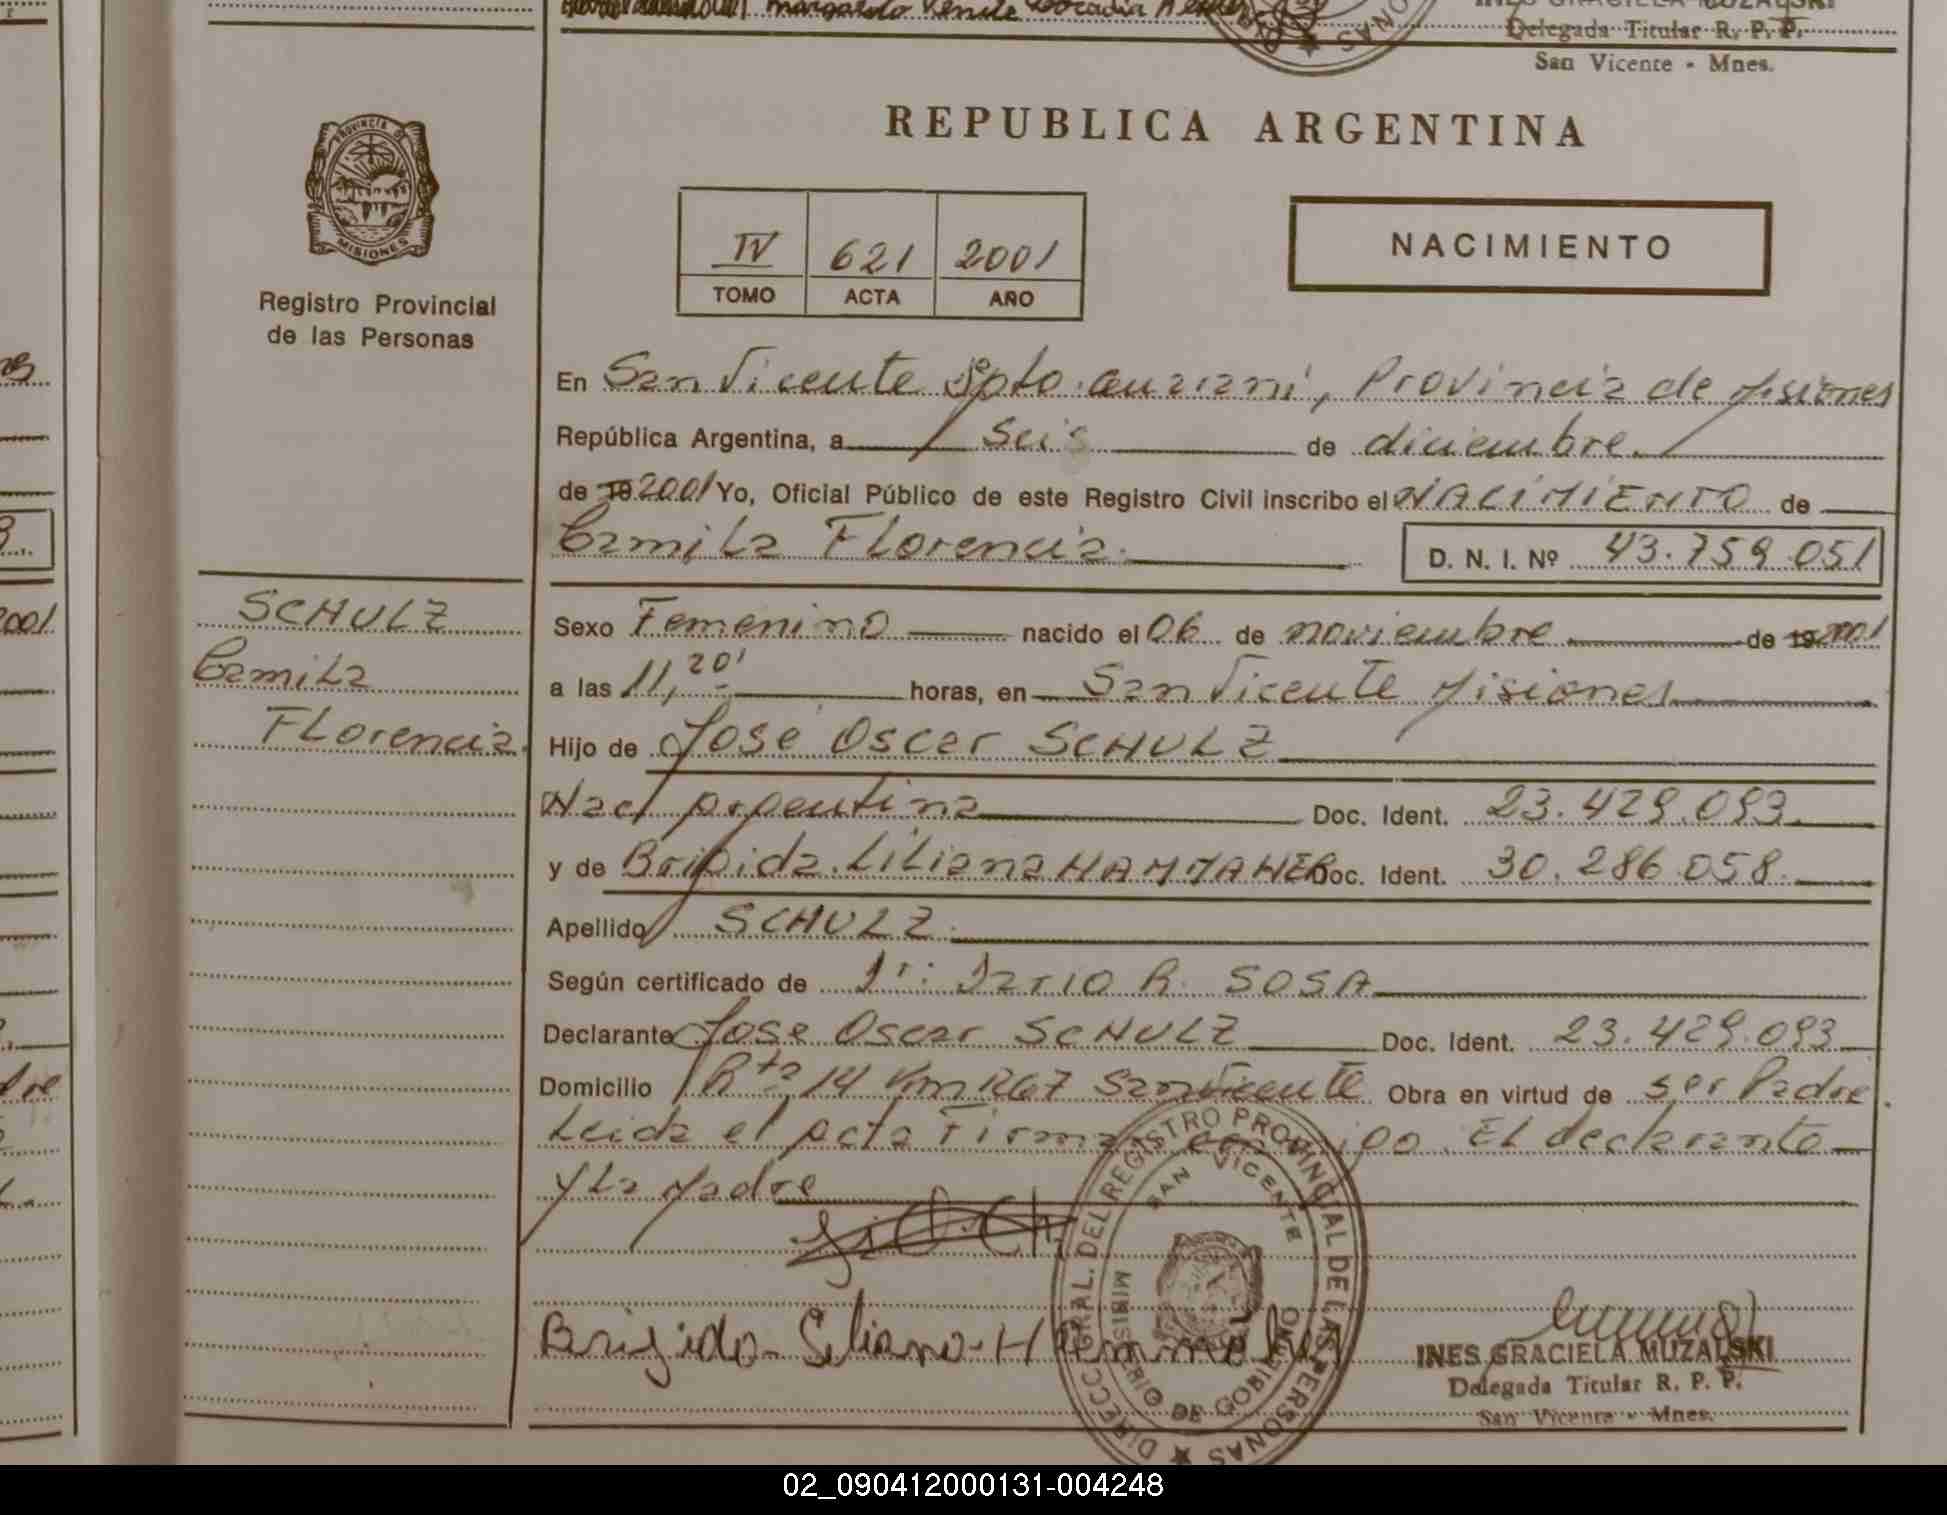 INES GRACIELA MUZALSKI
Delegada Titular R. P. P.
San Vicente - Mnes.
PROVINCIA DE
MISIONES
Registro Provincial
de las Personas
REPUBLICA ARGENTINA
IV 621 2001
TOMO ACTA AÑO
NACIMIENTO
En San Vicente Dpto. Guarani, Provincia de Misiones
República Argentina, a seis de diciembre
de 19 2001 Yo, Oficial Público de este Registro Civil inscribo el NACIMIENTO de
Camila Florencia. D. N. I. Nº 43.759.051
SCHULZ
Camila
Florencia.
Sexo Femenino nacido el 06 de noviembre de 19 2001
a las 11,20' horas, en San Vicente Misiones
Hijo de José Oscar SCHULZ
Nac. Argentina Doc. Ident. 23.429.093
y de Brigida Liliana HAMMAHER Doc. Ident. 30.286.058.
Apellido SCHULZ.
Según certificado de Dr: Dario R. SOSA
Declarante Jose Oscar SCHULZ Doc. Ident. 23.429.093
Domicilio Rta 14 Km 1267 San Vicente Obra en virtud de ser Padre.
Leida el acta Firma conmigo. El declarante
y La Madre
DIRECC. GRAL. DEL REGISTRO PROVINCIAL DE LAS PERSONAS
SAN VICENTE
MINISTERIO DE GOBIERNO
Brigida Liliana Hammaher
INES GRACIELA MUZALSKI
Delegada Titular R. P. P.
San Vicente - Mnes.
02_090412000131-004248